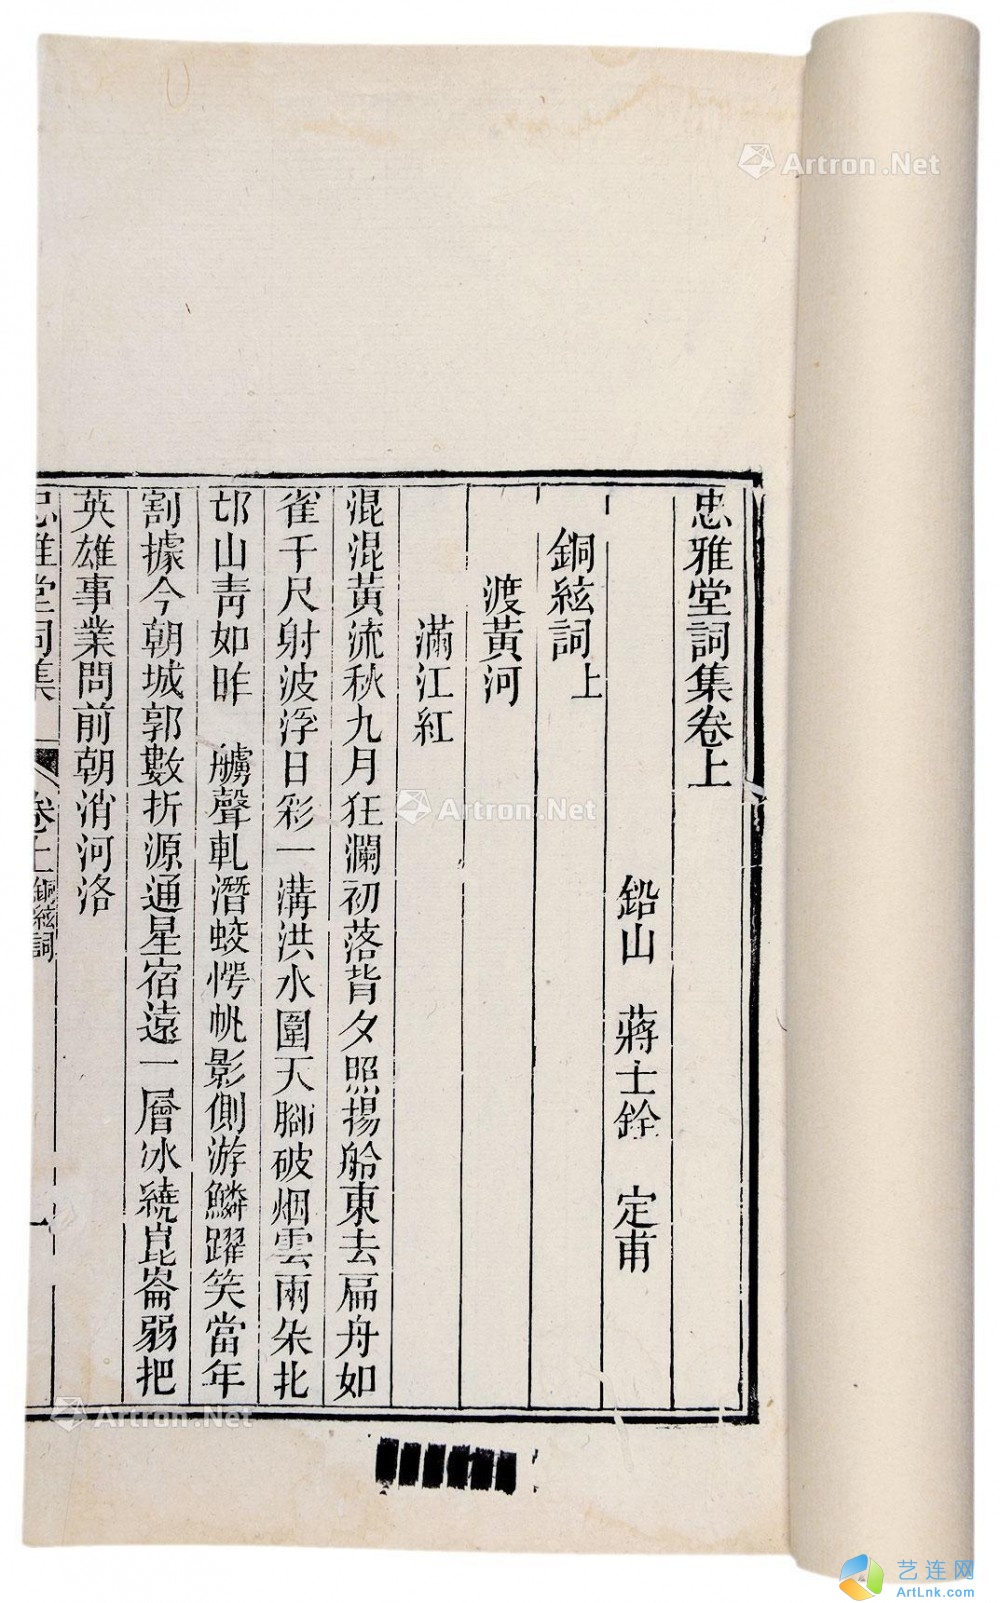 忠雅堂詞集卷上
鉛山 蔣士銓 定甫
銅絃詞上
渡黃河
滿江紅
混混黃流秋九月狂瀾初落背夕照揚舲東去扁舟如
雀千尺射波浮日彩一溝洪水圍天腳破烟雲兩朵北
邙山青如昨 艣聲軋潛蛟愕帆影側游鱗躍笑當年
割據今朝城郭數折源通星宿遠一層冰繞崑崙弱把
英雄事業問前朝消河洛
忠雅堂詞集 卷上銅絃詞 一
Artron.Net
Artron.Net
Artron.Net
艺连网
ArtLnk.com